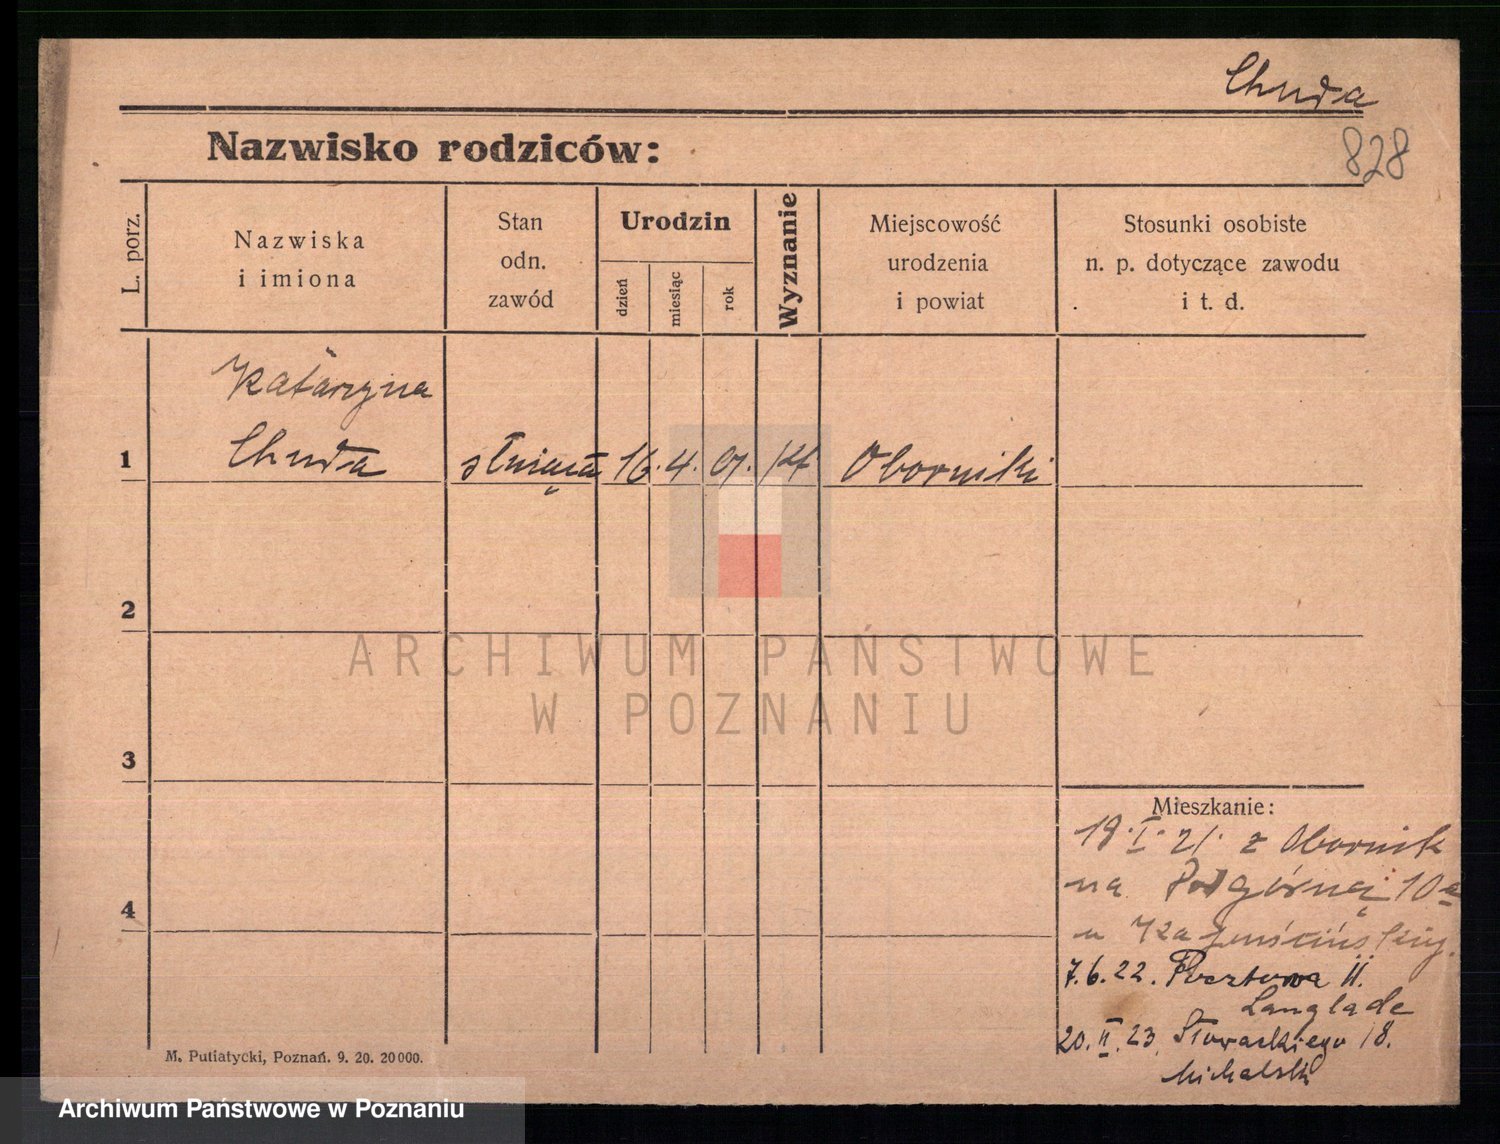 Chuda
828
Nazwisko rodziców:
L. porz.
Nazwiska
i imiona
Stan
odn.
zawód
Urodzin
dzień
miesiąc
rok
Wyznanie
Miejscowość
urodzenia
i powiat
Stosunki osobiste
n. p. dotyczące zawodu
i t. d.
Katarzyna
1 Chuda służąca 16. 4. 01. kat Oborniki
2
ARCHIWUM PAŃSTWOWE
W POZNANIU
3
Mieszkanie:
18. I. 21. z Obornik
na Podgórną 10a
4
u
7.6.22. Pocztowa 11.
Langlade
20. II. 23. Słowackiego 18.
Michalski
M. Putiatycki, Poznań. 9. 20. 20000.
Archiwum Państwowe w Poznaniu